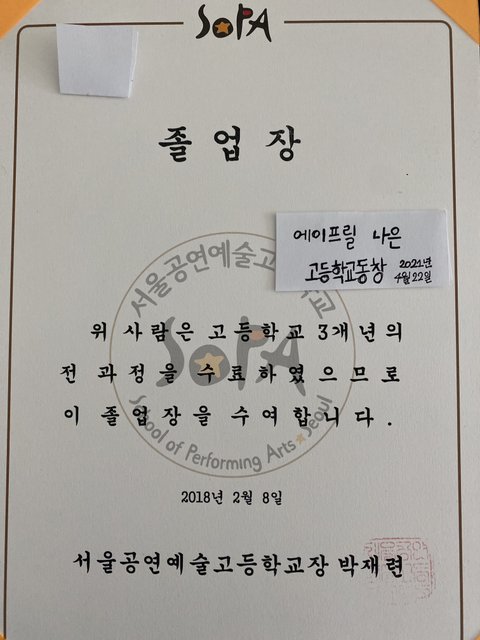 SOPA
졸업장
에이프릴 나은
고등학교동창
2021년
4월 22일
서울공연예술고등학교
위 사람은 고등학교 3개년의
전 과정을 수료하였으므로
이 졸업장을 수여합니다.
SOPA
School of Performing Arts Seoul
2018년 2월 8일
서울공연예술고등학교장 박재련